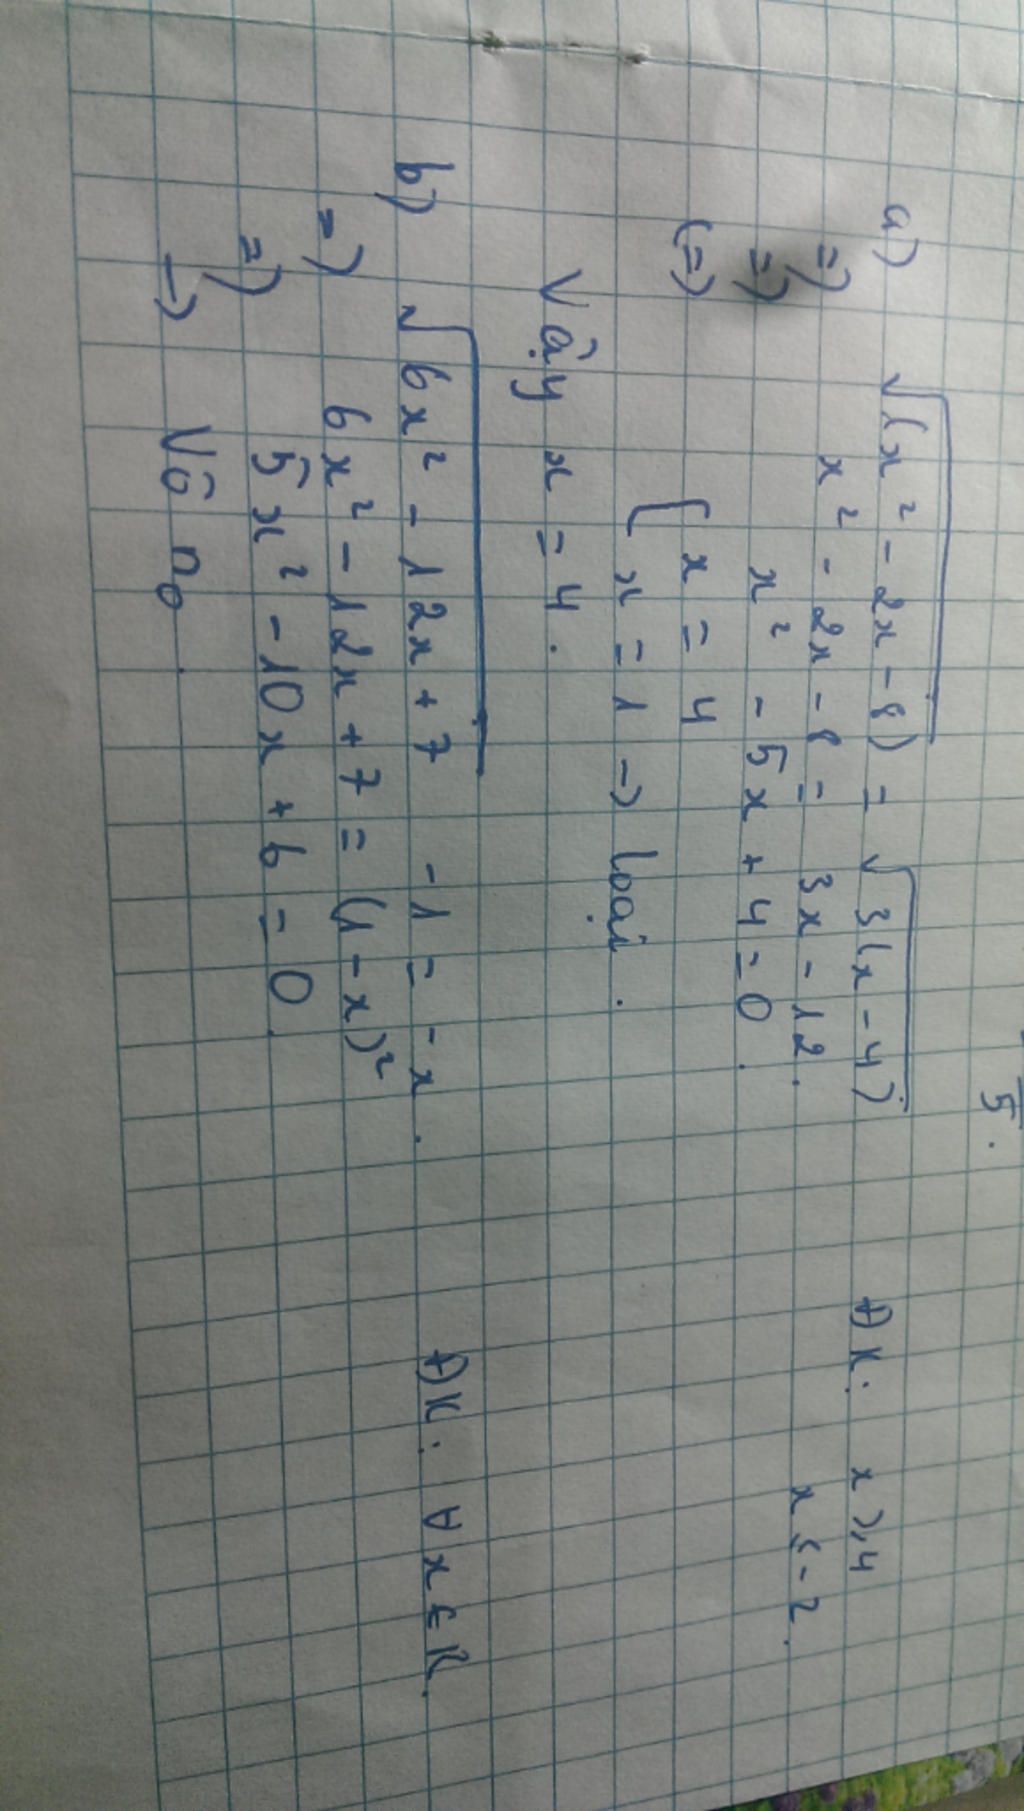 5.
a) √(x² - 2x - 8) = √3(x - 4) ĐK: x ⩾ 4
=) x² - 2x - 8 = 3x - 12. x ≤ -2.
=) x² - 5x + 4 = 0.
(=) { x = 4
x = 1 -> loại.
Vậy x = 4.
b) √6x² - 12x + 7 - 1 = -x. ĐK: ∀ x ∈ R.
=) 6x² - 12x + 7 = (1 - x)²
=) 5x² - 10x + 6 = 0.
-> Vô no.